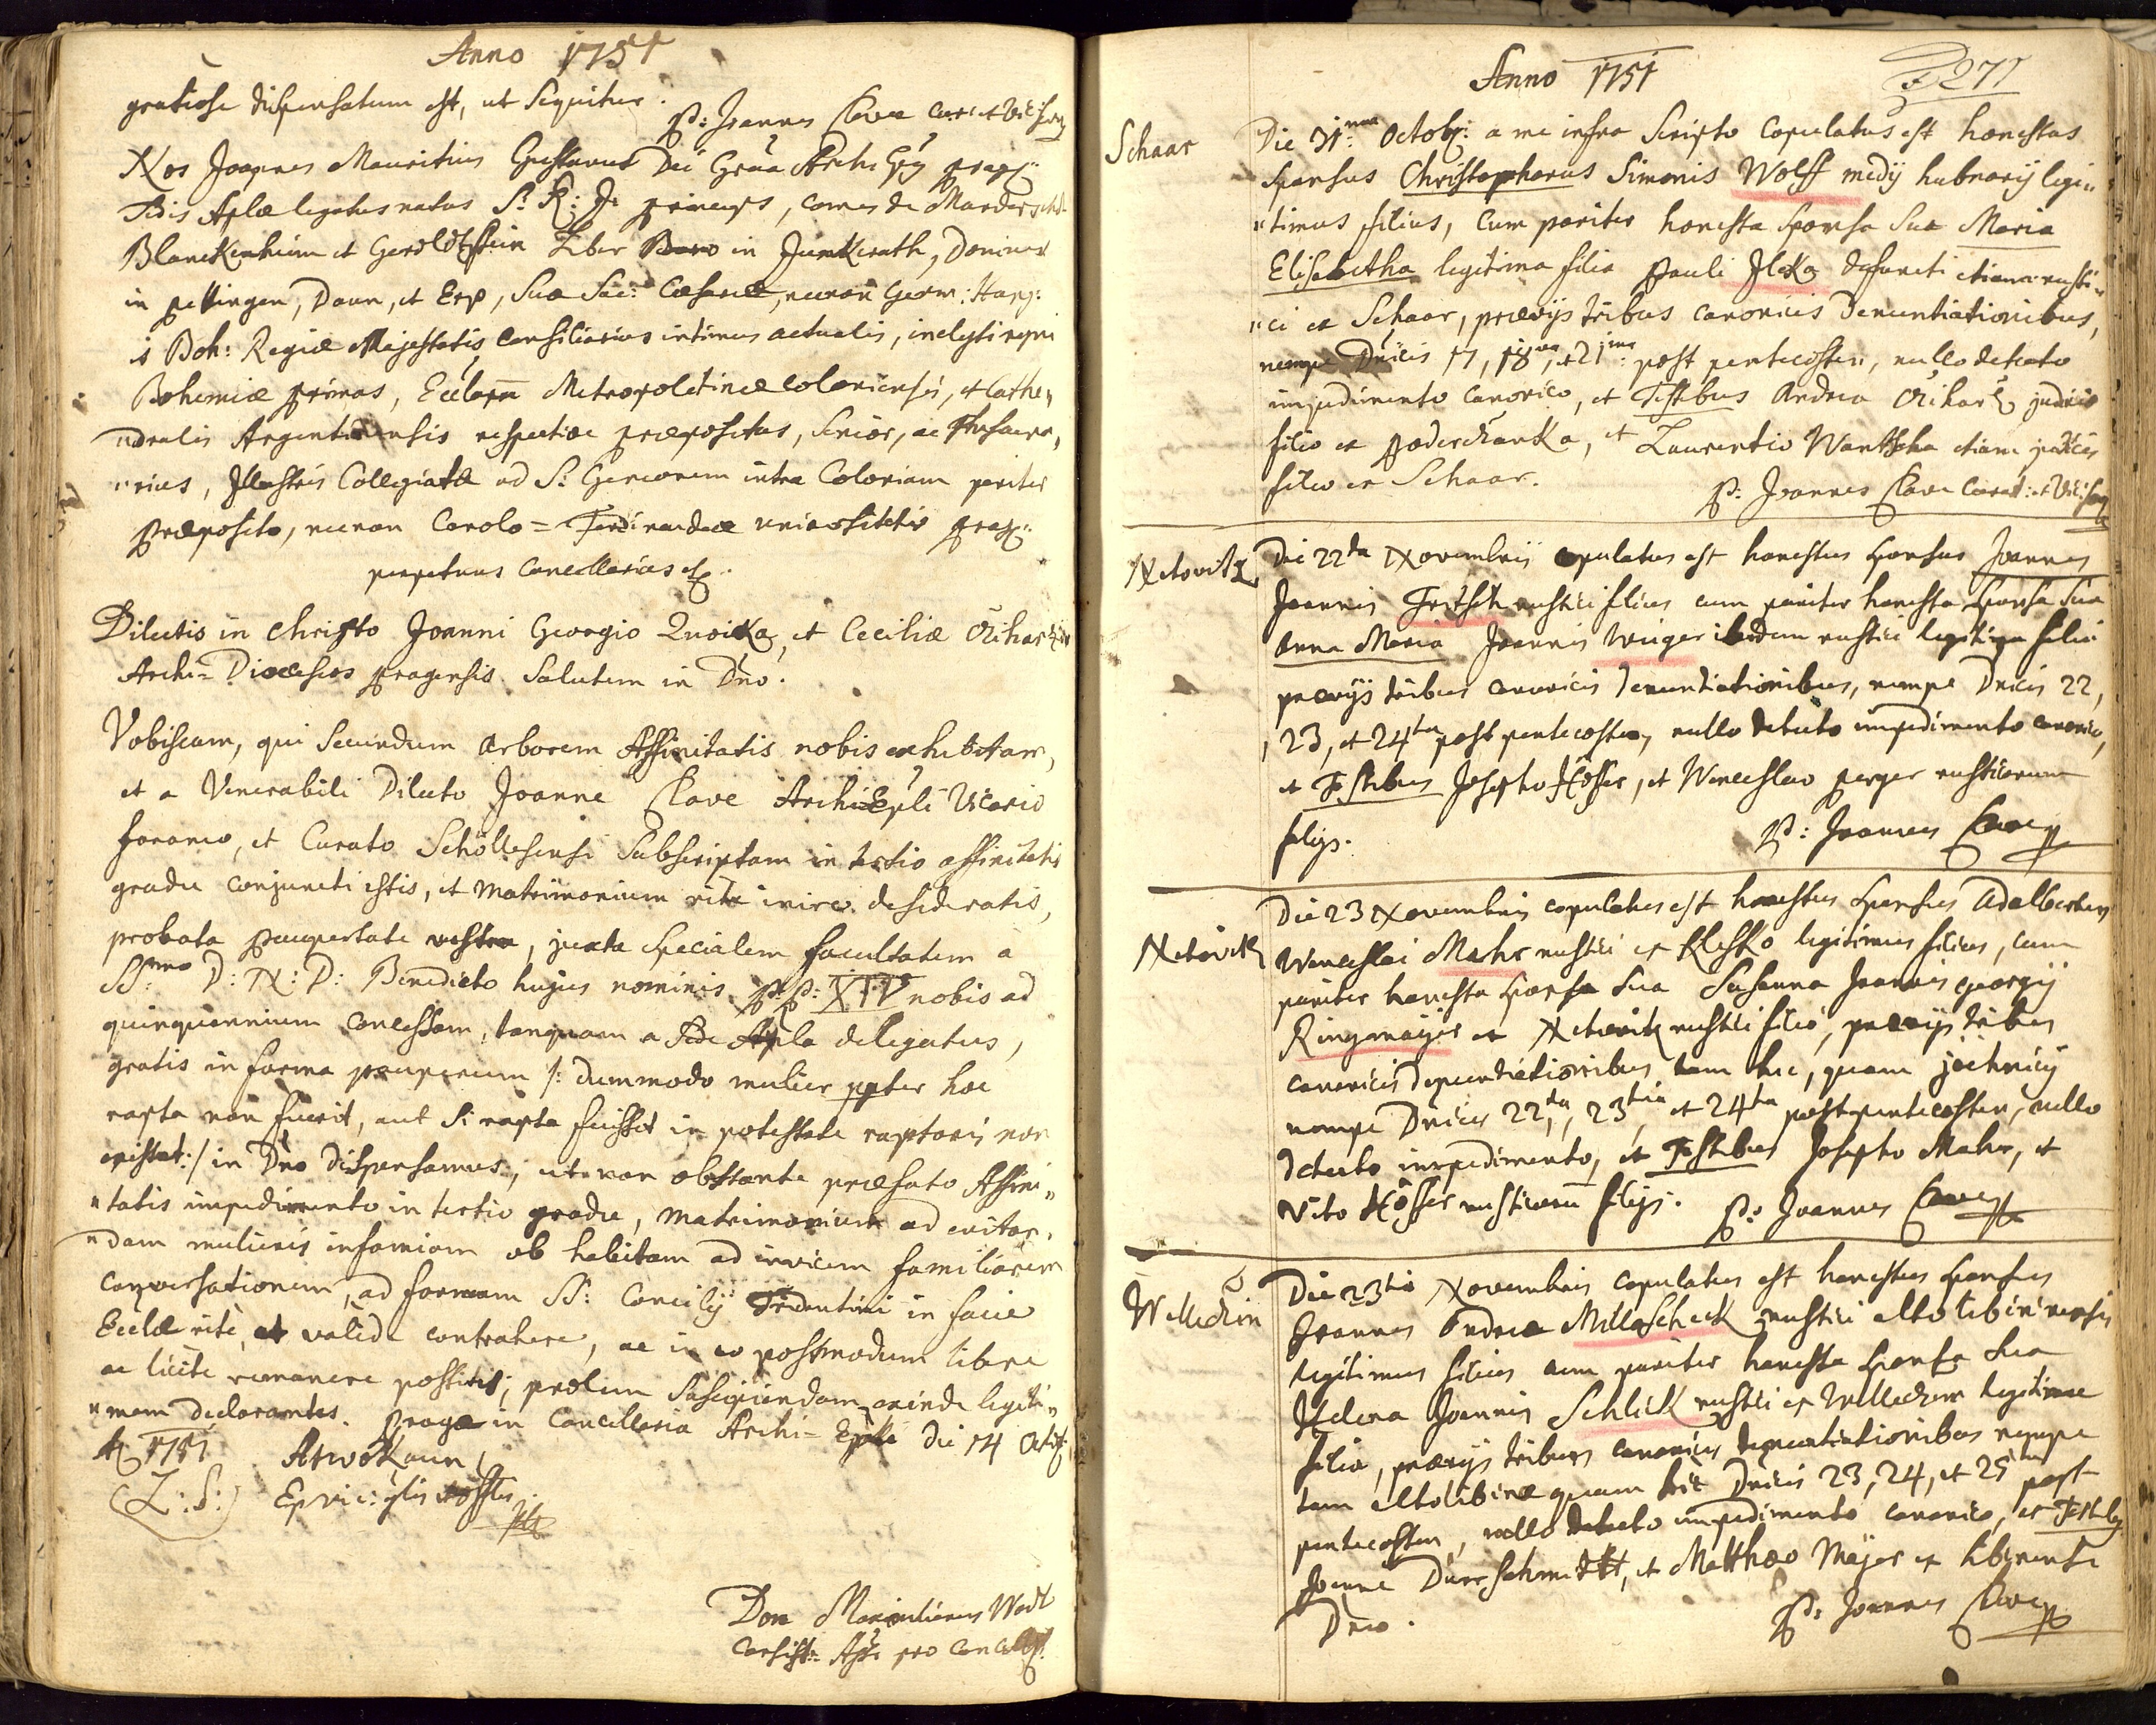 Anno 1751
gratiose dispensatum est, ut sequitur.
P: Joannes Clave Cur: et Vic: for:
Nos Joannes Mauritius Gustavus Dei Gratia Archi Eppus Prag:
Sedis Aplae legatus natus S: R: J: princeps, comes de Manderscheid
Blanckenheim et Geroldtstein Liber Baro in Junkerath, Dominus
in Pettingen, Daun, et Erp, Suae Sac: Caesareae, necnon Germ: Hung:
& Boh: Regiae Majestatis consiliarius intimus actualis, inclyti regni
Bohemiae primas, Ecclarum Metropolitinae coloniensis, et Cathe,,
,,dralis Argentinensis respective praepositus, senior, ac Thesaura,,
,,rius, Illustris Collegiatae ad S: Gereonem intra Coloniam pariter
praeposito, necnon Carolo= Ferdinandeae universitatis Prag:
perpetuus cancellarius etc.
Dilectis in Christo Joanni Georgio Quoika, et Ceciliae
Archi= Dioecesios pragensis Salutem in Dno.
Vobiscum, qui secundum Arborem Affinitatis nobis exhibitam,
et a Venerabili Dilecto Joanne Clave Archi Eppli Vicario
foraneo, et Curato Schöllesensi subscriptam in tertio affinitatis
gradu conjuncti estis, et matrimonium rite inire desideratis,
probata paupertate vestra, juxta specialem facultatem a
SSmo D: N: D: Benedicto hujus nominis P: P: XIV nobis ad
quinquennium concessam, tanquam a Sede Apla delegatus,
gratis in forma pauperum /: dummodo mulier ppter hoc
rapta non fuerit, aut si rapta fuisset in potestate raptoris non
existat :/ in Dno dispensamus, ut non obstante praefato Affini,,
,,tatis impedimento in tertio gradu, matrimonium ad evitan,,
,,dam mulieris infamiam ob habitam ad invicem familiarem
conversationem, ad formam SS: Concilij Tridentini in facie
Ecclae rite, et valide contrahere, ac in eo postmodum libere
ac licite remanere possitis, prolem suscipiendam exinde legiti,,
,,mam declarantes. Pragae in Cancellaria Archi= Eppli die 14 Octob:
A 1751
(L: S:)
Don Maximilianus
Consist: pro
Anno 1751
271
Schaar
Die 31ma Octobr: a me infra scripto copulatus est honestus
sponsus Christophorus Simonis Wolff medij hubnarij legi,,
,,timus filius, cum pariter honesta sponsa sua Maria
Elisabetha legitima filia Pauli Jleka defuncti etiam rusti,,
,,ci ex Schaar, praevijs tribus canonicis denuntiationibus,
nempe Dnicis 17, 18va, et 21ma post pentecosten, nullo detecto
impedimento canonico, et Testibus Andrea judicis
filio ex, et Laurentio Wantscha etiam judicis
filio ex Schaar.
P: Joannes Clave Curat: et Vic: for:
Netovitz
Die 22da Novembris copulatus est honestus sponsus Joannes
Joannis Fritsch rustici filius cum pariter honesta sponsa sua
Anna Maria Joannis Weiger ibidem rustici legitima filia
praevijs tribus canonicis denuntiationibus, nempe Dnicis 22,
23, et 24ta post pentecosten, nullo detecto impedimento canonico,
et Testibus Josepho Höffer, et Wenceslao Perger rusticorum
filijs.
P: Joannes Clave
Netovitz
Die 23 Novembris copulatus est honestus sponsus Adalbertus
Wenceslai Mahr rustici ex legitimus filius, cum
pariter honesta sponsa sua Susanna Joannis Georgij
Ringmayer ex Netovitz rustici filia, praevijs tribus
canonicis denuntiationibus tam hic, quam
nempe Dnicis 22da, 23tia et 24ta post pentecosten, nullo
detecto impedimento, et Testibus Josepho Mahr, et
Vito Höffer rusticorum filijs.
P: Joannes Clave
Welleschin
Die 23tia Novembris copulatus est honestus sponsus
Joannes Andreae Millascheck rustici
legitimus filius cum pariter honesta sponsa sua
Helena Joannis Schlick rustici ex legitima
filia, praevijs tribus canonicis denuntiationibus nempe
tam quam hic Dnicis 23, 24, et 25ta post
pentecosten, nullo detecto impedimento canonico, et Testibus
Joanne Durrschmidt, et Matthaeo Mayer ex
P: Joannes Clave